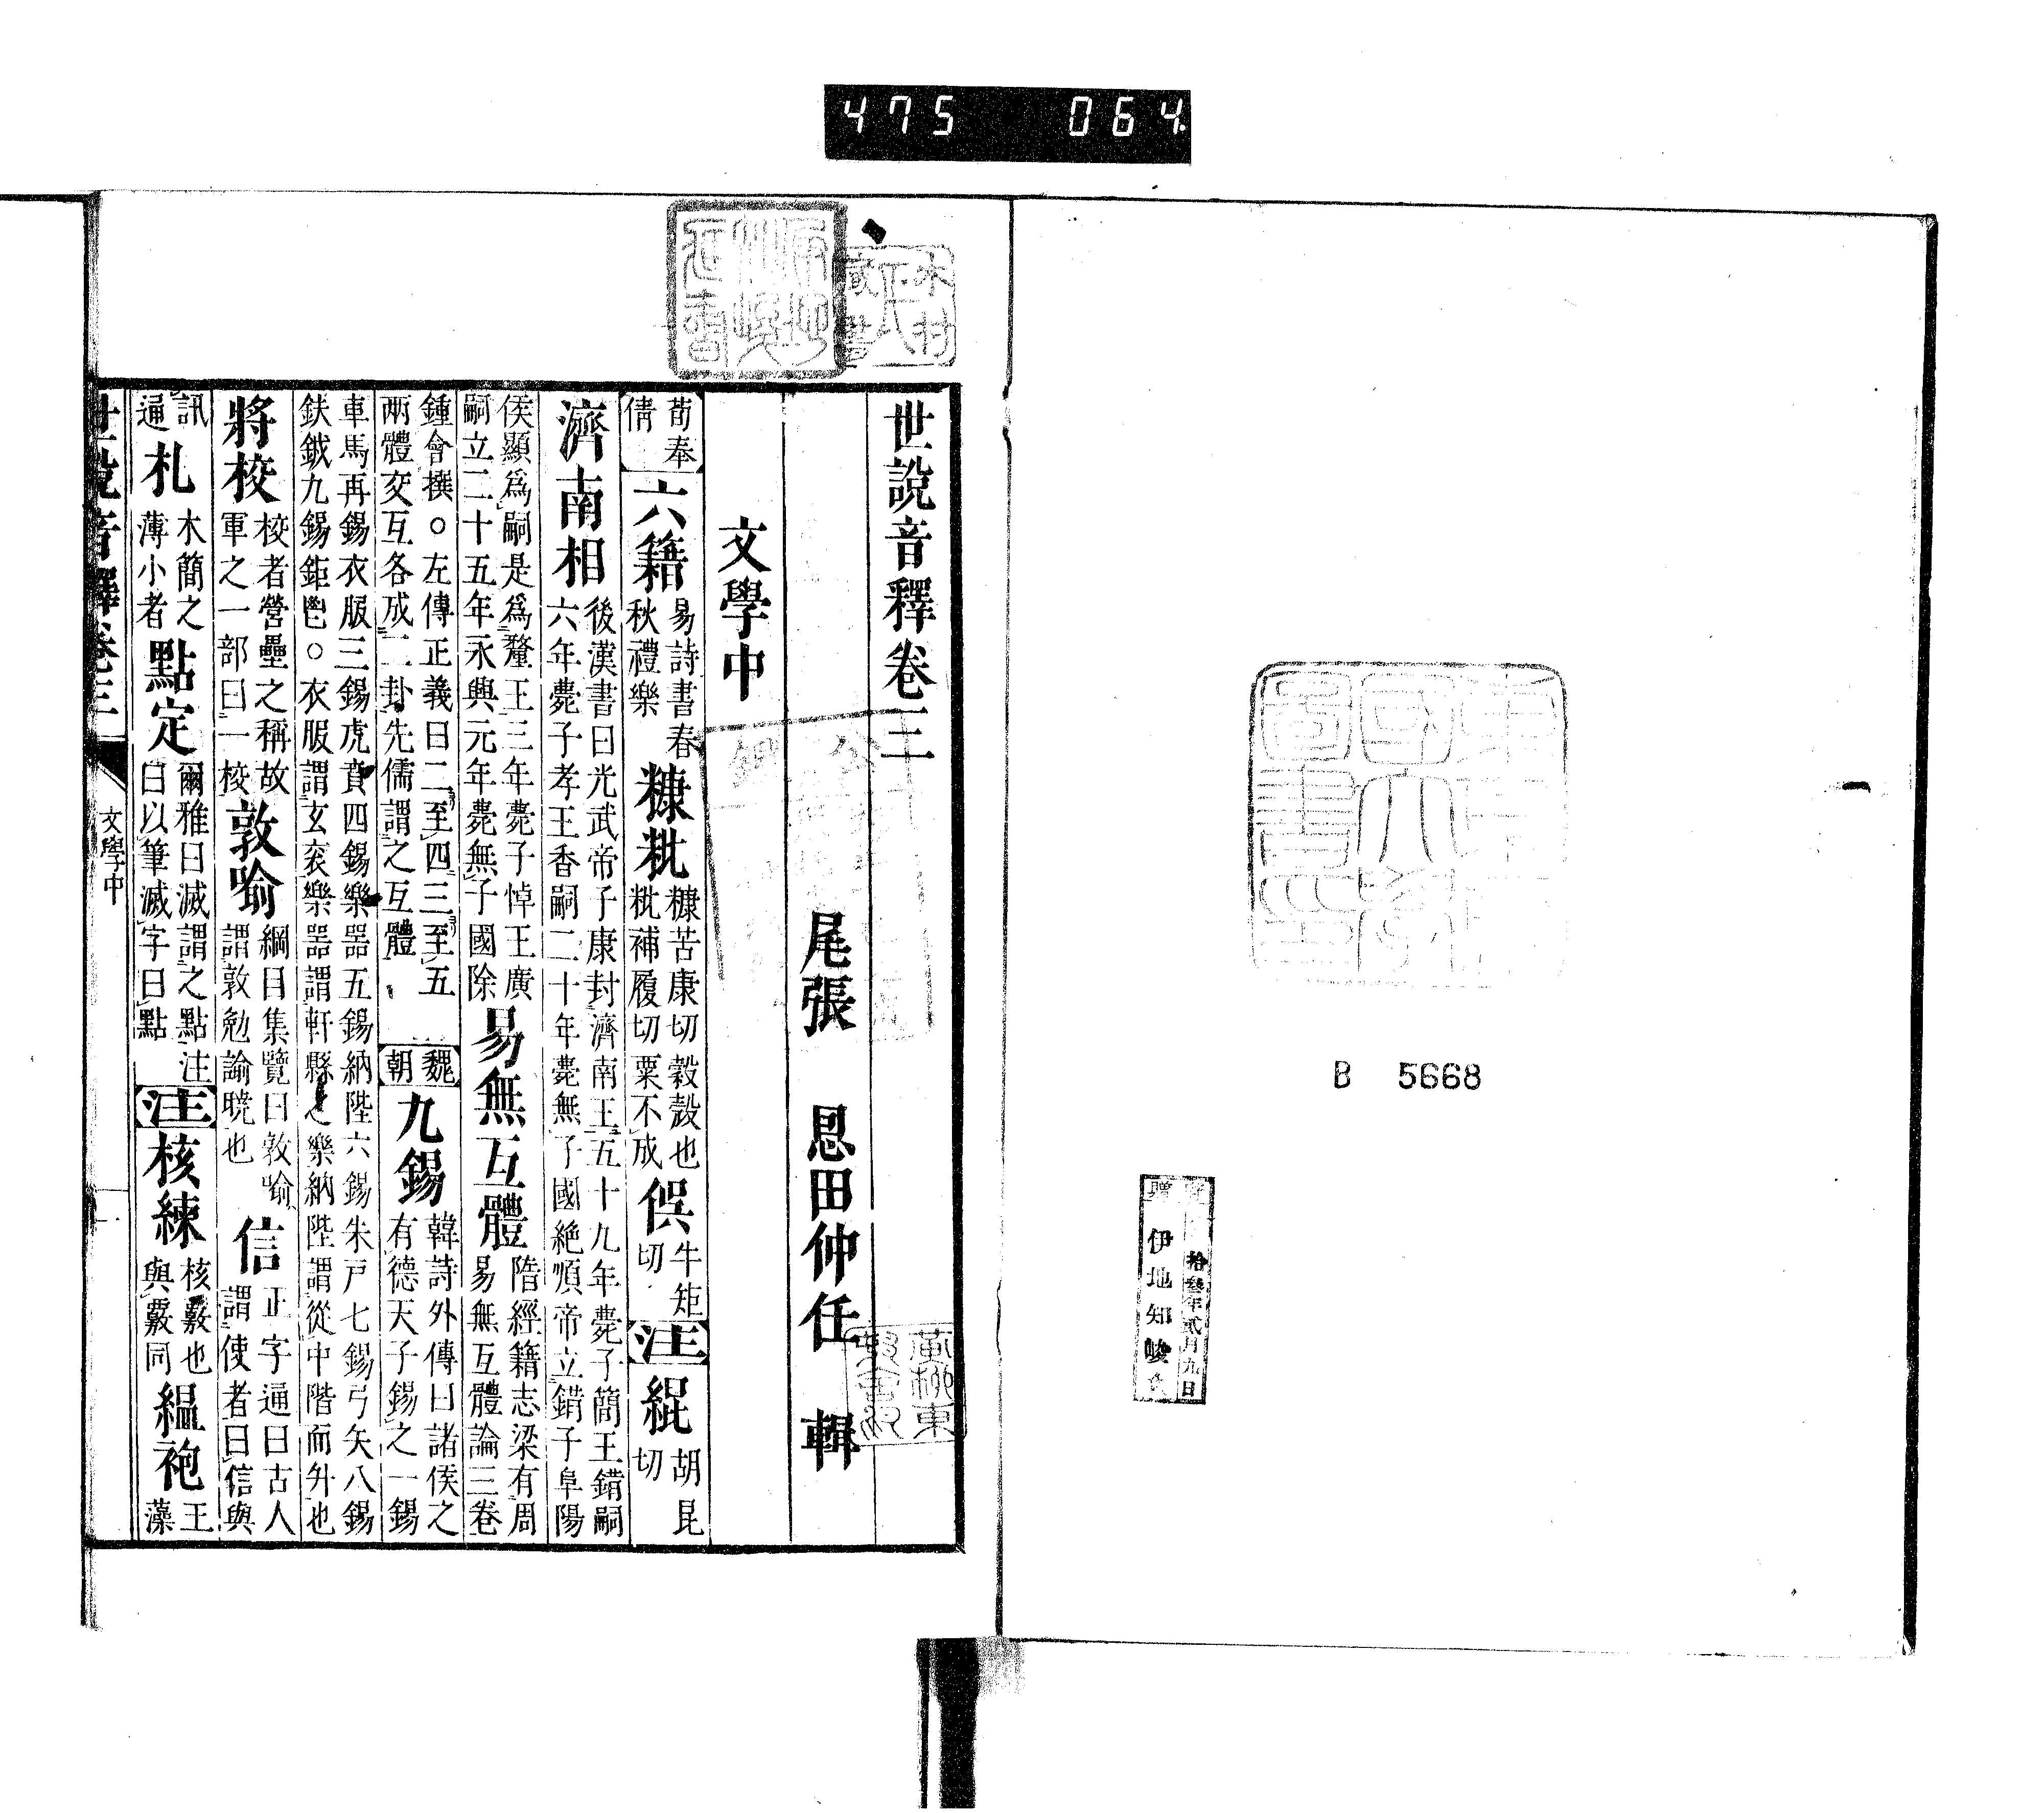 475 064
B 5668
拾叁年貳月九日
伊地知峻
世說音釋卷三
尾張 恩田仲任 輯
文學中
荀奉
倩
六籍
易詩書春
秋禮樂
糠粃
糠苦康切穀殼也
粃補履切粟不成
俁
牛矩
切
注
緄
胡昆
切
濟南相
後漢書曰光武帝子康封濟南王五十九年薨子簡王錯嗣
六年薨子孝王香嗣二十年薨無子國絶順帝立錯子阜陽
侯顯爲嗣是爲釐王三年薨子悼王廣
嗣立二十五年永興元年薨無子國除
易無互體
隋經籍志梁有周
易無互體論三卷
鍾會撰○左傳正義曰二至四三至五
兩體交互各成二卦先儒謂之互體
魏
朝
九錫
韓詩外傳曰諸侯之
有德天子錫之一錫
車馬再錫衣服三錫虎賁四錫樂器五錫納陛六錫朱戸七錫弓矢八錫
鈇鉞九錫鉅鬯○衣服謂玄衮樂器謂軒縣之樂納陛謂從中階而升也
將校
校者營壘之稱故
軍之一部曰一校
敦喻
綱目集覽曰敦喻
謂敦勉諭曉也
信
正字通曰古人
謂使者曰信與
訊
通
札
木簡之
薄小者
點定
爾雅曰滅謂之點注
曰以筆滅字曰點
注
核練
核覈也
與覈同
縕袍
王
藻
世說音釋卷三
文學中
一